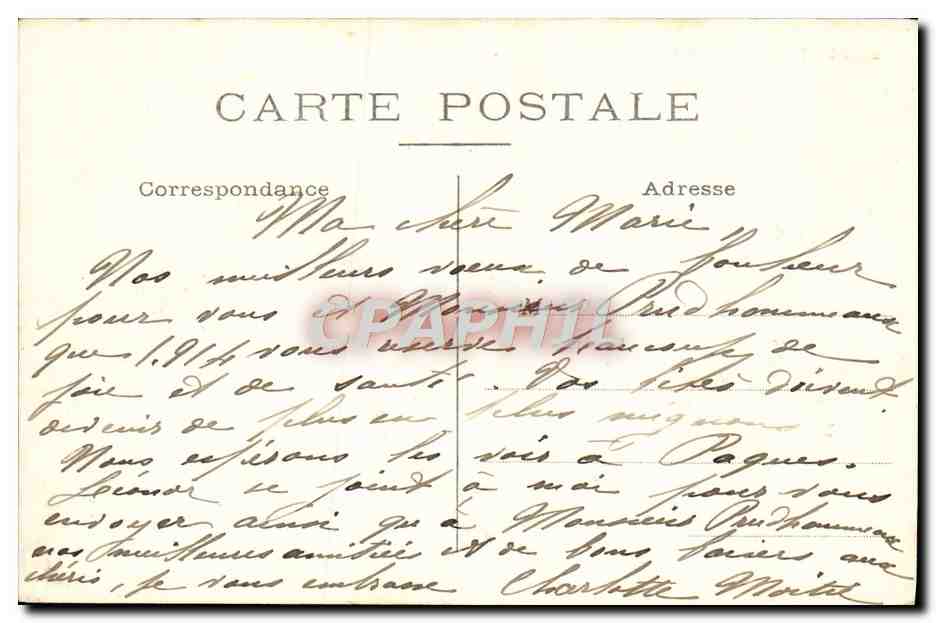 CARTE POSTALE
Correspondance
Adresse
Ma chère Marie
Nos meilleurs voeux de bonheur
pour vous et Monsieur Prudhommeaux
que 1914 vous réserve beaucoup de
joie et de santé. Vos doivent
devenir de plus en plus mignons.
Nous espérons les voir à Paques.
Léonor se joint à moi pour vous
envoyer ainsi que à Monsieur Prudhommeaux
nos meilleures amitiés et de bons baisers aux
chéris, je vous embrasse Charlotte
CPAPHIL